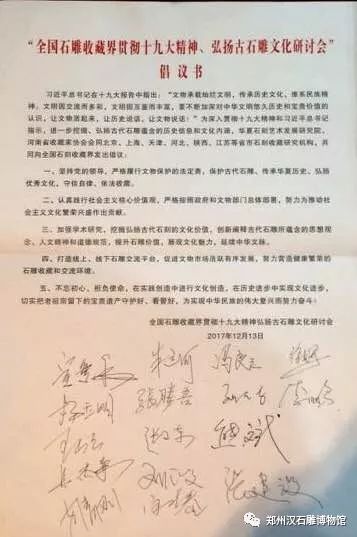 “全国石雕收藏界贯彻十九大精神、弘扬古石雕文化研讨会”
倡议书
习近平总书记在十九大报告中指出：“文物承载灿烂文明，传承历史文化，维系民族精
神。文明因交流而多彩，文明因互鉴而丰富，要不断加深对中华文明悠久历史和宝贵价值的
认识，让文物活起来，让历史说话，让文物说话！”为深入贯彻十九大精神和习近平总书记
指示，进一步挖掘、弘扬古代石雕蕴含的历史信息和文化内涵，华夏石刻艺术发展研究院，
河南省收藏家协会会同北京、上海、天津、河北、陕西、江苏等省市石刻收藏研究机构，共
同向全国石刻收藏界发出倡议：
一、坚持党的领导，严格履行文物保护的法定责，保护古代石雕、传承华夏历史、弘扬
优秀文化，守信自律、依法收藏。
二、认真践行社会主义核心价值观，严格按照政府和文物部门总体部署，努力为推动社
会主义文化繁荣兴盛作出贡献。
三、加强学术研究，挖掘弘扬古石刻的文化价值，创新阐释古代石雕所蕴含的思想观
念、人文精神和道德规范，提升石雕价值，展现文化魅力，延续中华文脉。
四、打造线上、线下石雕交流平台，促进文物市场活跃有序发展，努力营造健康繁荣的
石雕收藏和交流环境。
五、不忘初心，担负使命，在实践创造中进行文化创造，在历史进步中实现文化进步，
切实把老祖宗留下的宝贵遗产守护好、看管好，为实现中华民族的伟大复兴而努力奋斗！
全国石雕收藏界贯彻十九大精神弘扬古石雕文化研讨会
2017年12月13日
郑州汉石雕博物馆